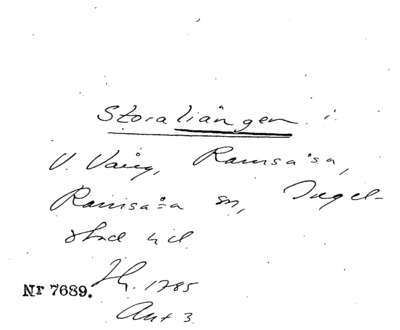 Storaliängen i
V. Vång, Ramsåsa,
Ramsåsa sn, Ingel-
stad hd.
1785
Nr 7689.
Akt 3